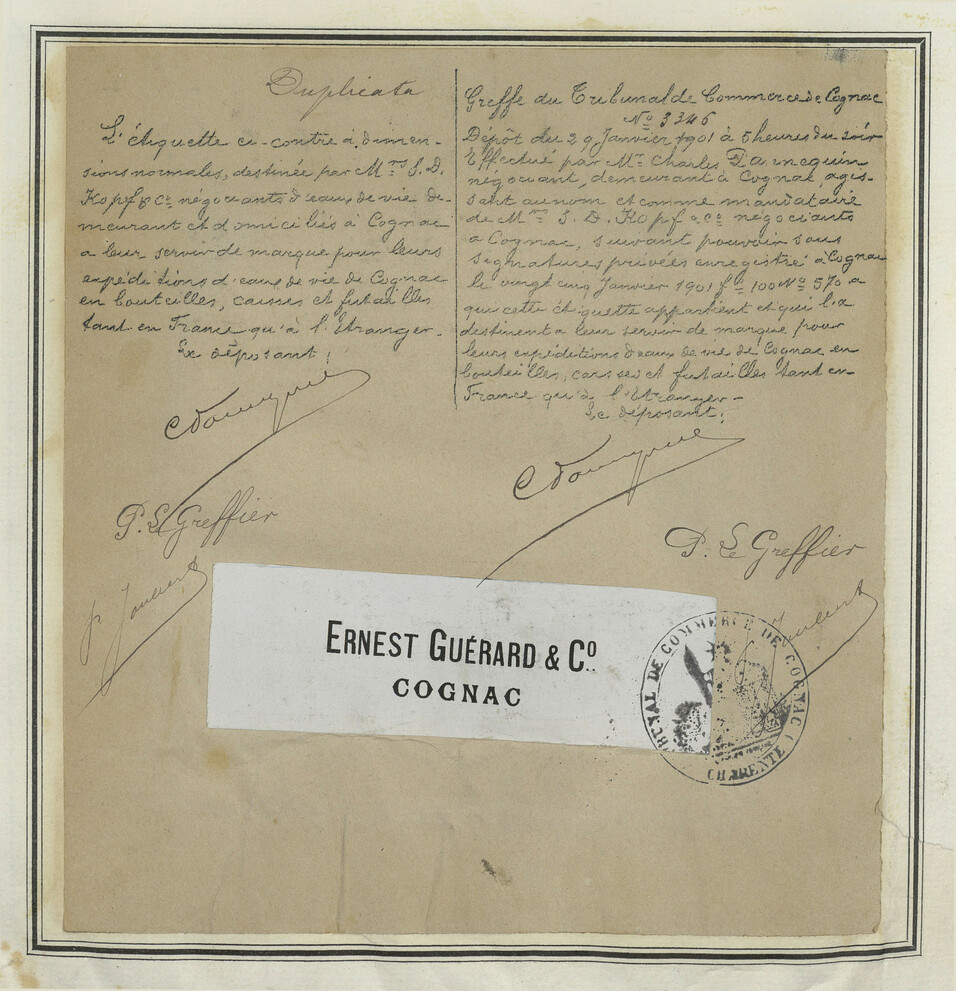 Duplicata
L'étiquette ci-contre à dimen-
sions normales, destinée par M.rs S. D.
Kopf & Co négociants d'eaux de vie de-
meurant et domiciliés à Cognac
a leur servir de marque pour leurs
expéditions d'eaux de vie de Cognac
en bouteilles, caisses et futailles
tant en France qu'à l'étranger.
Le déposant:
P. Le Greffier
Greffe du Tribunal de Commerce de Cognac
No 3346
Dépôt du 29 Janvier 1901 à 5 heures du soir
Effectué par Mr Charles
négociant, demeurant à Cognac, agis-
sant au nom et comme mandataire
de M.rs S. D. Kopf & Co négociants
a Cognac, suivant pouvoir sous
signatures privées enregistré à Cognac
le vingt cinq Janvier 1901 fo 100 No 570 a
que cette étiquette appartient et qui l'a
destinent a leur servir de marque pour
leurs expéditions d'eaux de vie de Cognac en
bouteilles, caisses et futailles tant en
France qu'à l'étranger-
Le déposant:
P. Le Greffier
ERNEST GUÉRARD & Co.
COGNAC
TRIBUNAL DE COMMERCE DE COGNAC
CHARENTE